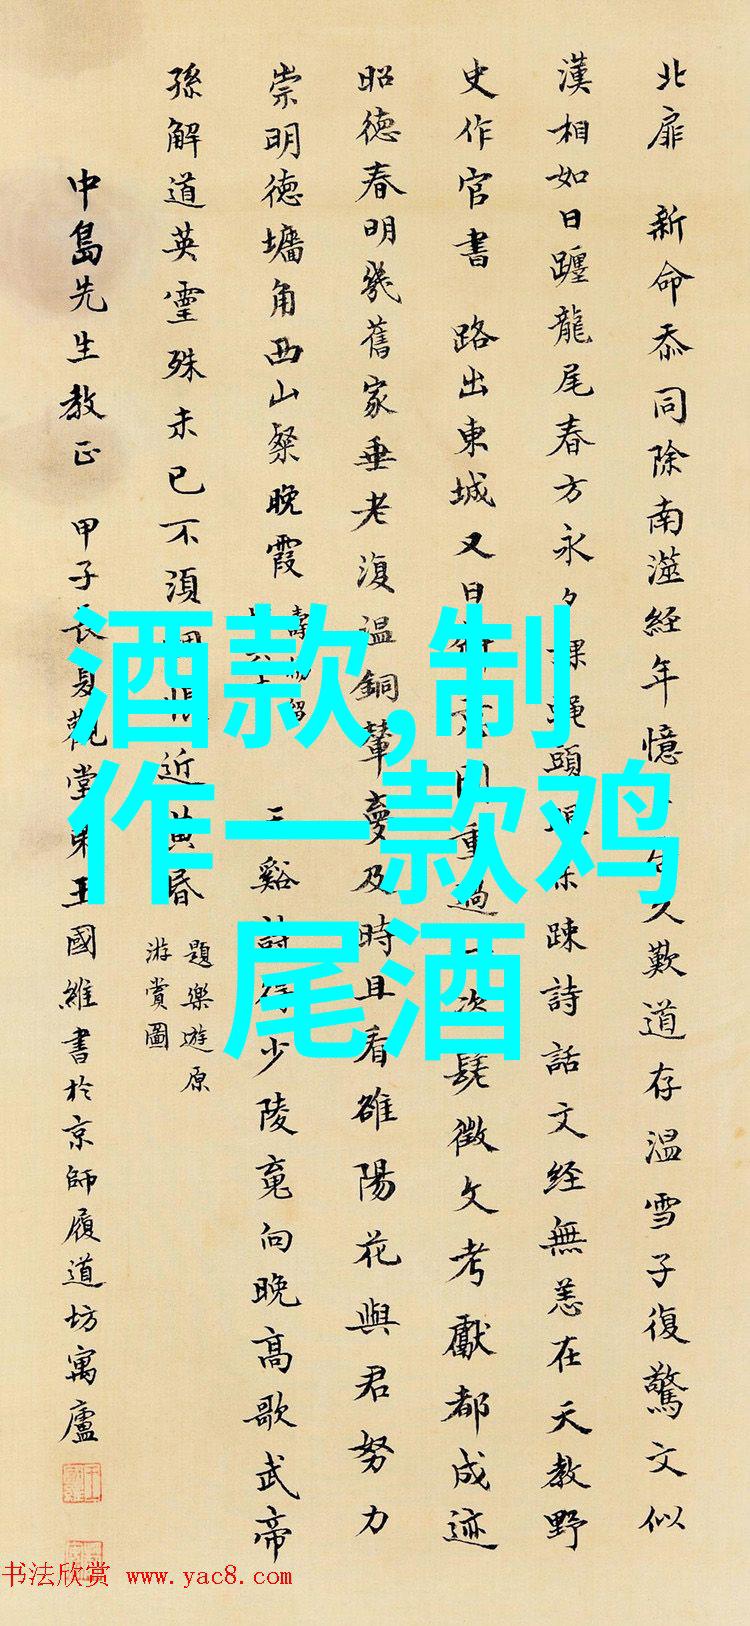 北扉 新命忝同除南遊經年憶
歎道存温雪子復驚文似
漢相如日躔龍尾春方永夕課蠅頭
疎詩話文經無恙在天教野
史作官書 路出東城又日
重過一次髦徵文考獻都成迹
昭德春明幾舊家垂老復温銅輦夢及時且看雒陽花與君努力
崇明德墉角西山粲晚霞
玉谿詩
少陵竟向晚高歌武帝
孫解道英靈殊未已不須惆悵近黄昏
題樂遊原
游賞圖
中島先生教正 甲子長夏觀堂弟王國維書於京師履道坊寓廬
酒款,制
作一款鸡
尾酒
书法欣赏 www.yac8.com